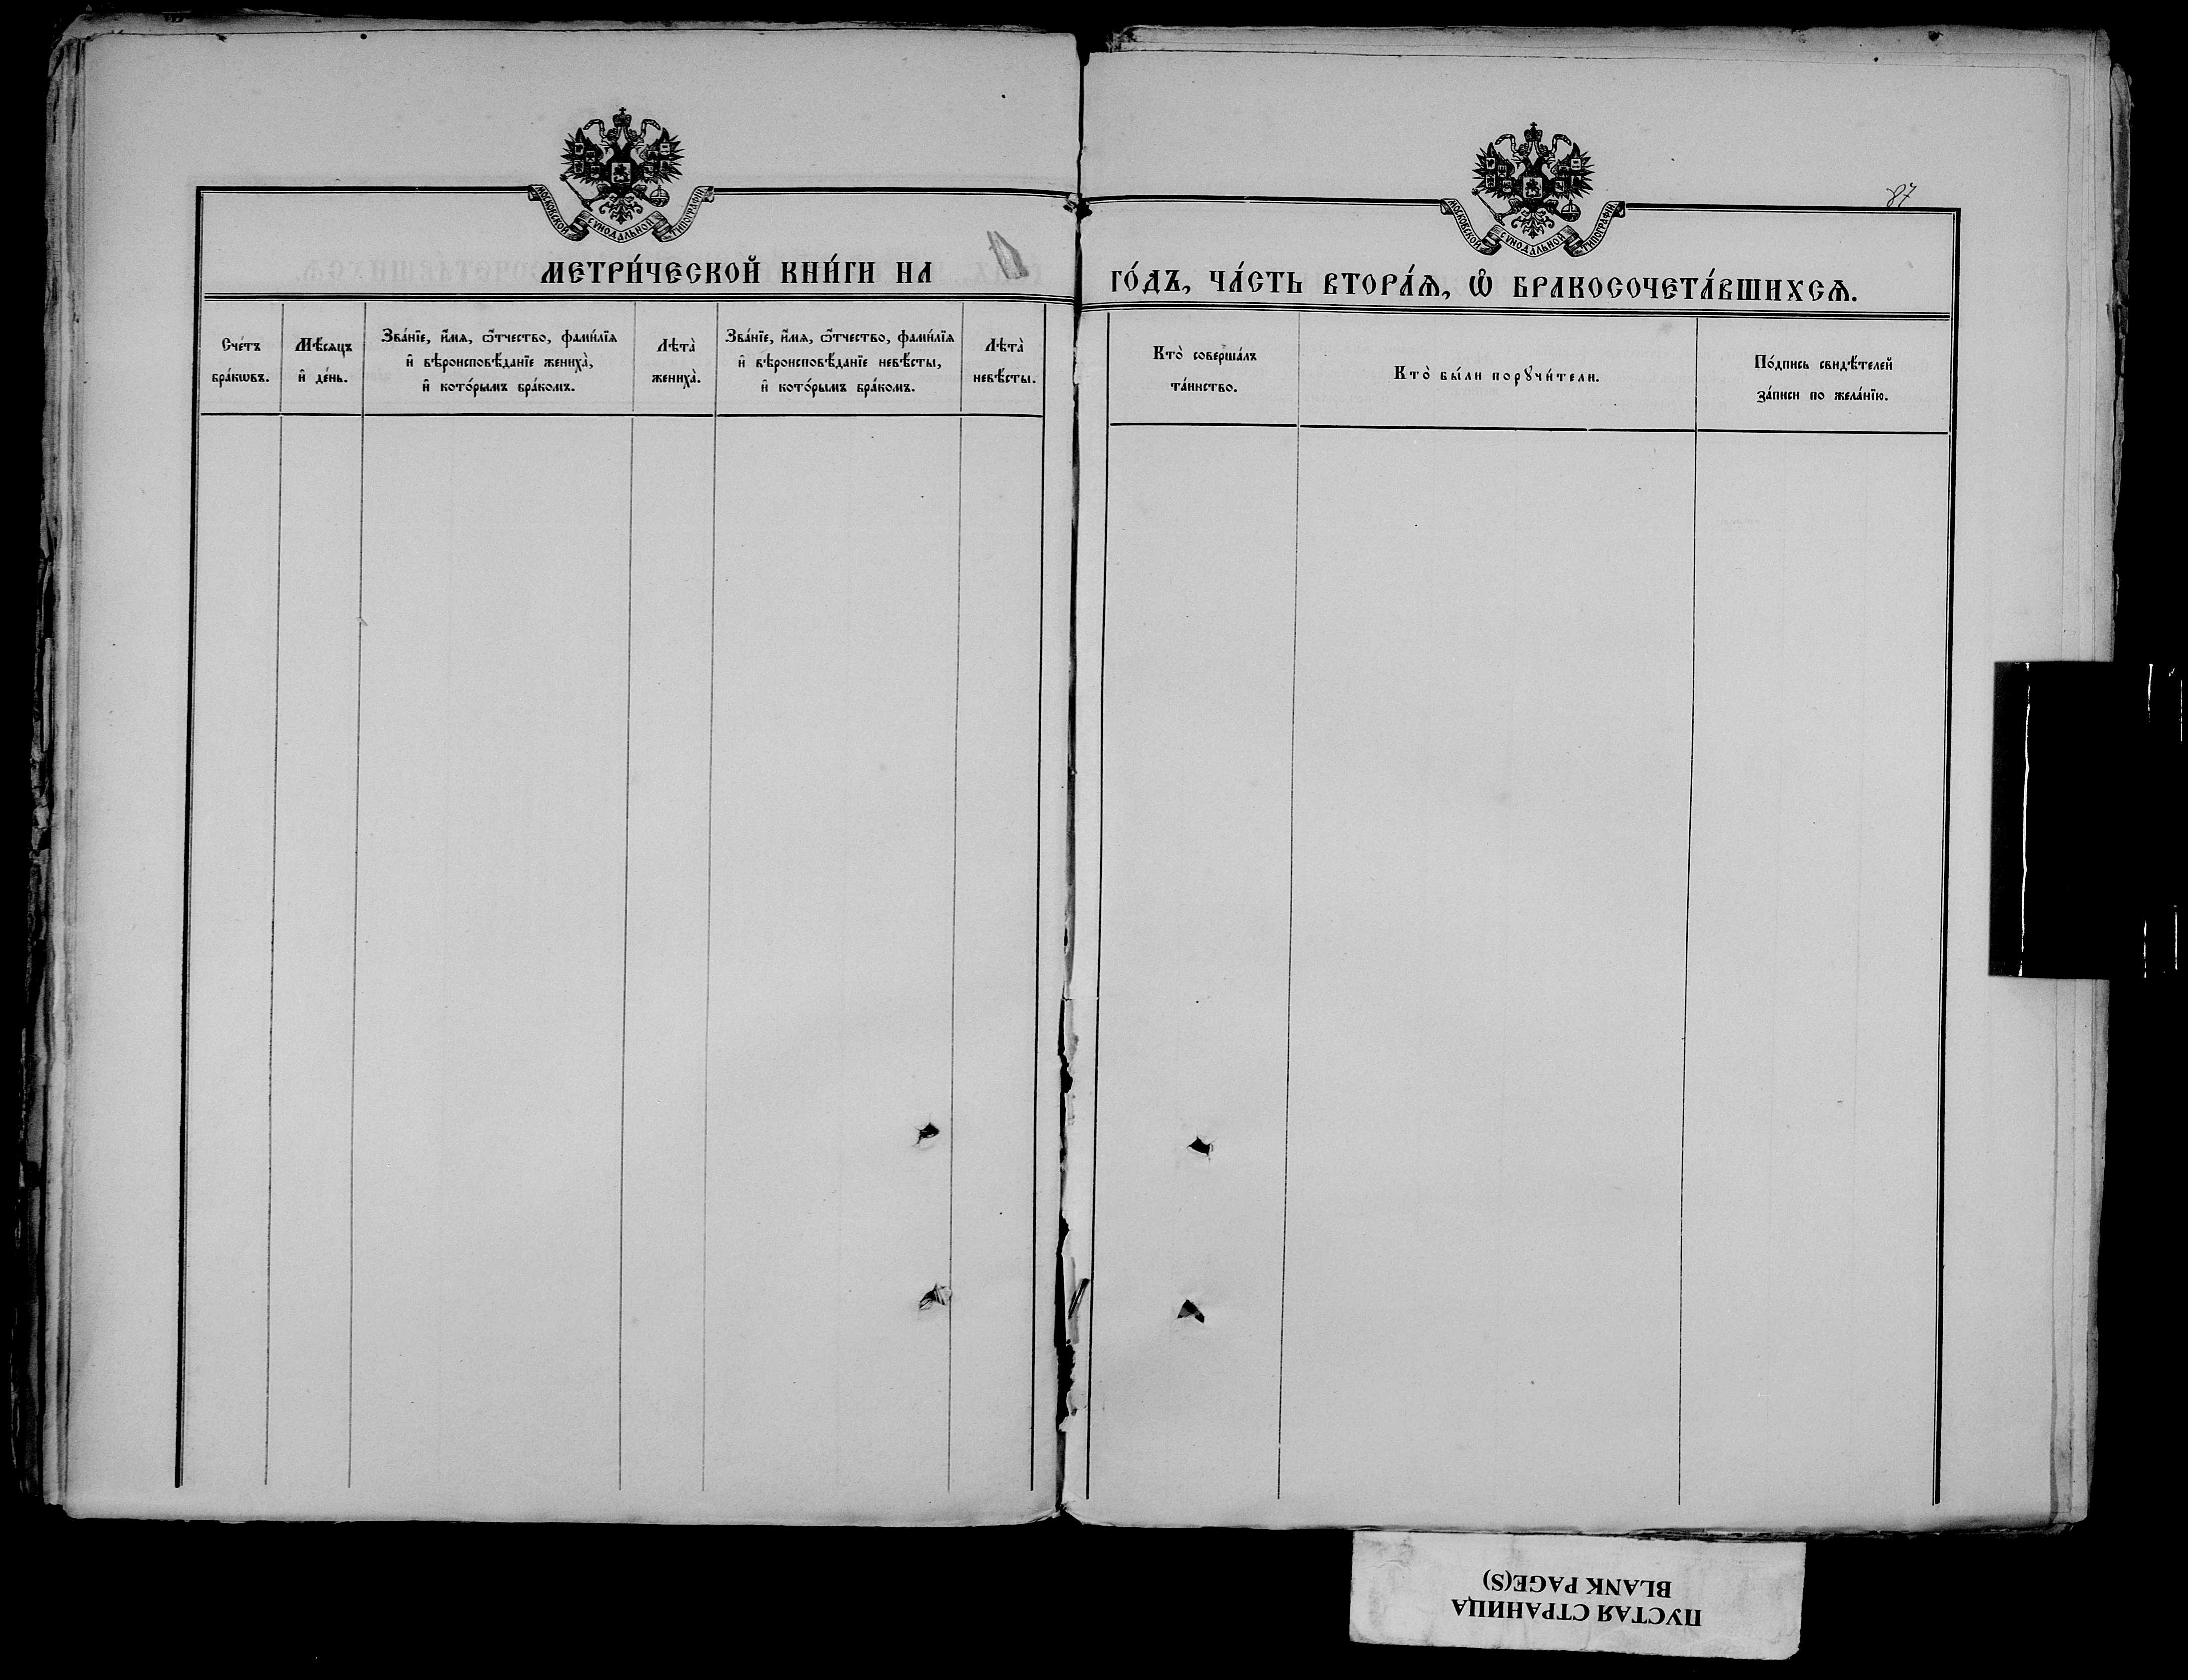 МОСКОВСКОЙ СѴНОДАЛЬНОЙ ТИПОГРАФІИ
МЕТРИ́ЧЕСКОЙ КНИ́ГИ НА
Сче́тъ
бра́кѡвъ.
Мѣ́сяцъ
и҆ де́нь.
Зва́нїе, и҆́мя, ѻ҆́тчество, фами́лїя
и҆ вѣроисповѣ́данїе жениха̀,
и҆ кото́рымъ бра́комъ.
Лѣта̀
жениха̀.
Зва́нїе, и҆́мя, ѻ҆́тчество, фами́лїя
и҆ вѣроисповѣ́данїе невѣ́сты,
и҆ кото́рымъ бра́комъ.
Лѣта̀
невѣ́сты.
87
МОСКОВСКОЙ СѴНОДАЛЬНОЙ ТИПОГРАФІИ
ГО́ДЪ, ЧА́СТЬ ВТОРА́Ѧ, Ѽ БРАКОСОЧЕТА́ВШИХСѦ.
Кто̀ соверша́лъ
та́инство.
Кто̀ бы́ли порꙋчи́тели.
По́дпись свидѣ́телей
за́писи по жела́нїю.
ПУСТАЯ СТРАНИЦА
BLANK PAGE(S)